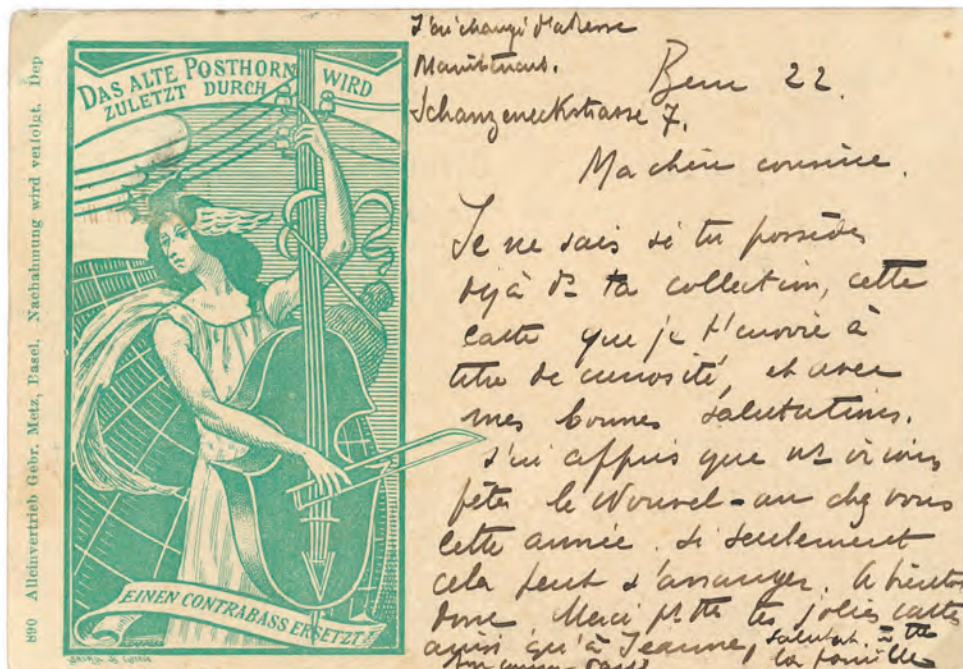 890 Alleinvertrieb Gebr. Metz, Basel. Nachahmung wird verfolgt. Dep
DAS ALTE POSTHORN WIRD
ZULETZT DURCH
EINEN CONTRABASS ERSETZT!
J'ai changé d'adresse
Maintenant.
Schanzeneckstrasse 7.
Bern 22.
Ma chère cousine.
Je ne sais si tu possèdes
déjà ds ta collection, cette
carte que je t'envoie à
titre de curiosité, et avec
mes bonnes salutations.
J'ai appris que ns irions
fêter le Nouvel-an chez vous
cette année. Si seulement
cela peut s'arranger. A bientôt
donc Merci pr tte tes jolies cartes
ainsi qu'à Jeanne, salutat. à tte
la famille